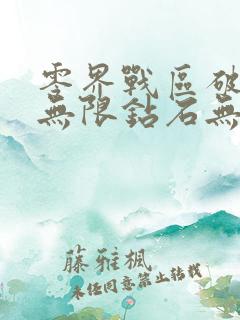 零界戰區破
無限鉆石無
藤雅楓
未经同意禁止转载